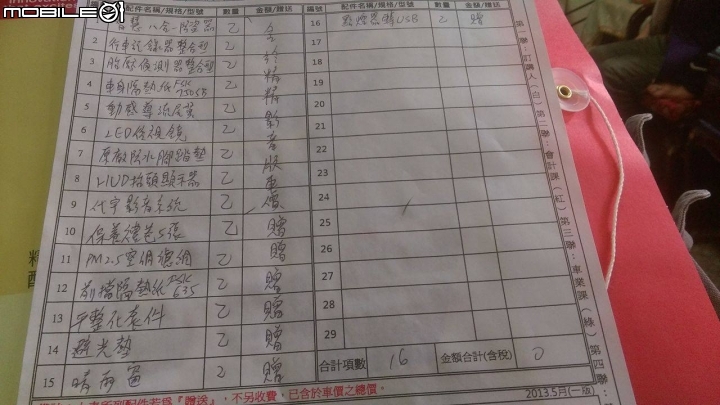 MOBILE01
配件名稱/規格/型號 數量 金額/贈送 編號 配件名稱/規格/型號 數量 金額/贈送
智慧八合一防盜器 乙 16 點煙器轉USB 乙 贈
2 行車記錄器整合型 乙 17
3 胎壓偵測器整合型 乙 18
4 車身隔熱紙 FSK 乙 19
5 動感導流尾翼 乙 20
6 LED後視鏡 乙 21
7 原廠防水腳踏墊 乙 22
8 抬頭顯示器 乙 23
9 影音系統 乙 24
10 保養禮卷5張 乙 贈 25
11 PM2.5 濾網 乙 贈 26
12 前擋隔熱紙 FSK 635 乙 贈 27
13 平整化套件 乙 贈 28
14 避光墊 乙 贈 29
15 晴雨窗 乙 贈 合計項數 16 金額合計(含稅) 0
『贈送』,不另收費,已含於車價之總價。
2013.5月(一版)
第一聯:訂購人(白) 第二聯:會計課(紅) 第三聯:車業課(綠) 第四聯